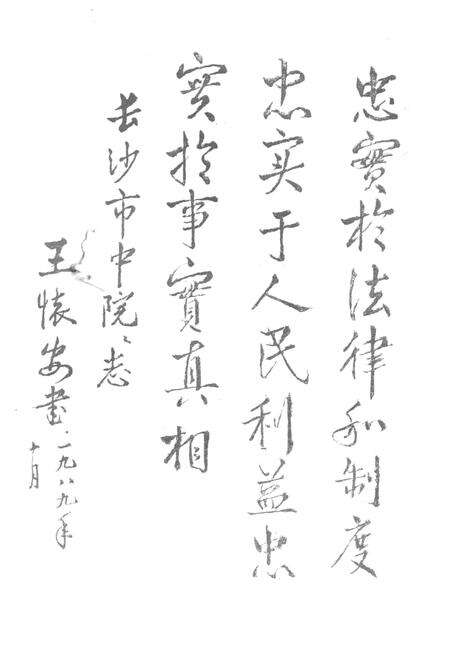 忠實於法律和制度
忠实于人民利益忠
實於事實真相
长沙市中院〻志
王懐安書
一九八九年
十月